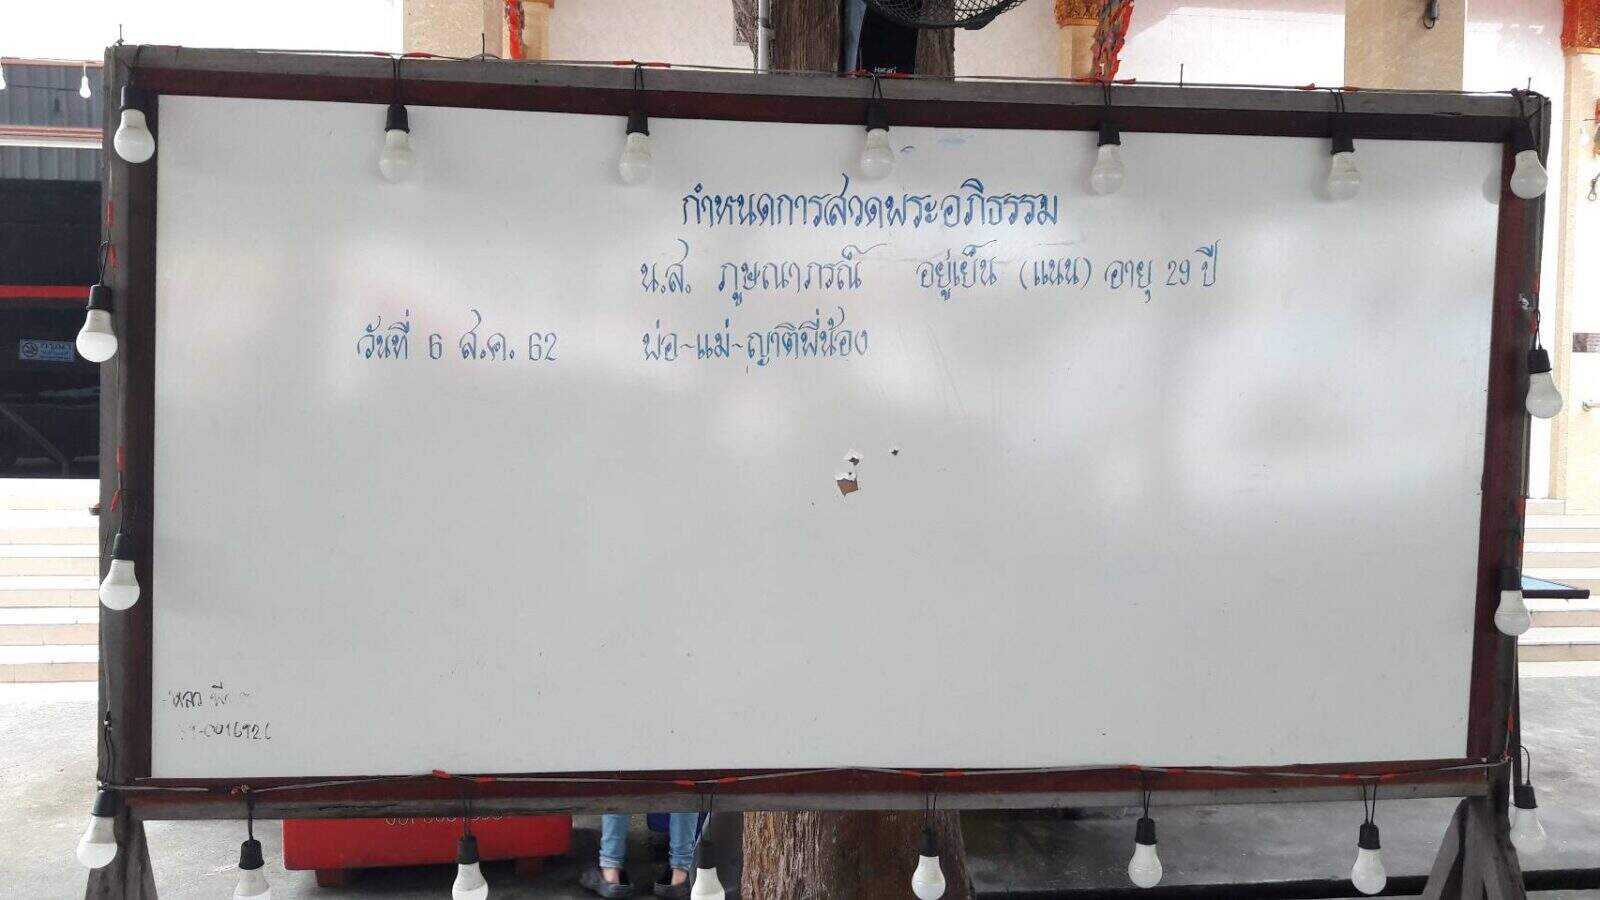 Hatari
กำหนดการสวดพระอภิธรรม
น.ส. ภูษณาภรณ์ อยู่เย็น (แนน) อายุ 29 ปี
วันที่ 6 ส.ค. 62 พ่อ~แม่~ญาติพี่น้อง
กรุณา
หลว